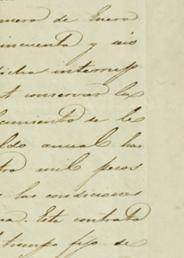 mero de Enero
incuenta y seis
dicha interrup
conservar los
lecimiento de le
ldo anual has
tro mil pesos
las condiciones
Este contrato
tiempo fijo de